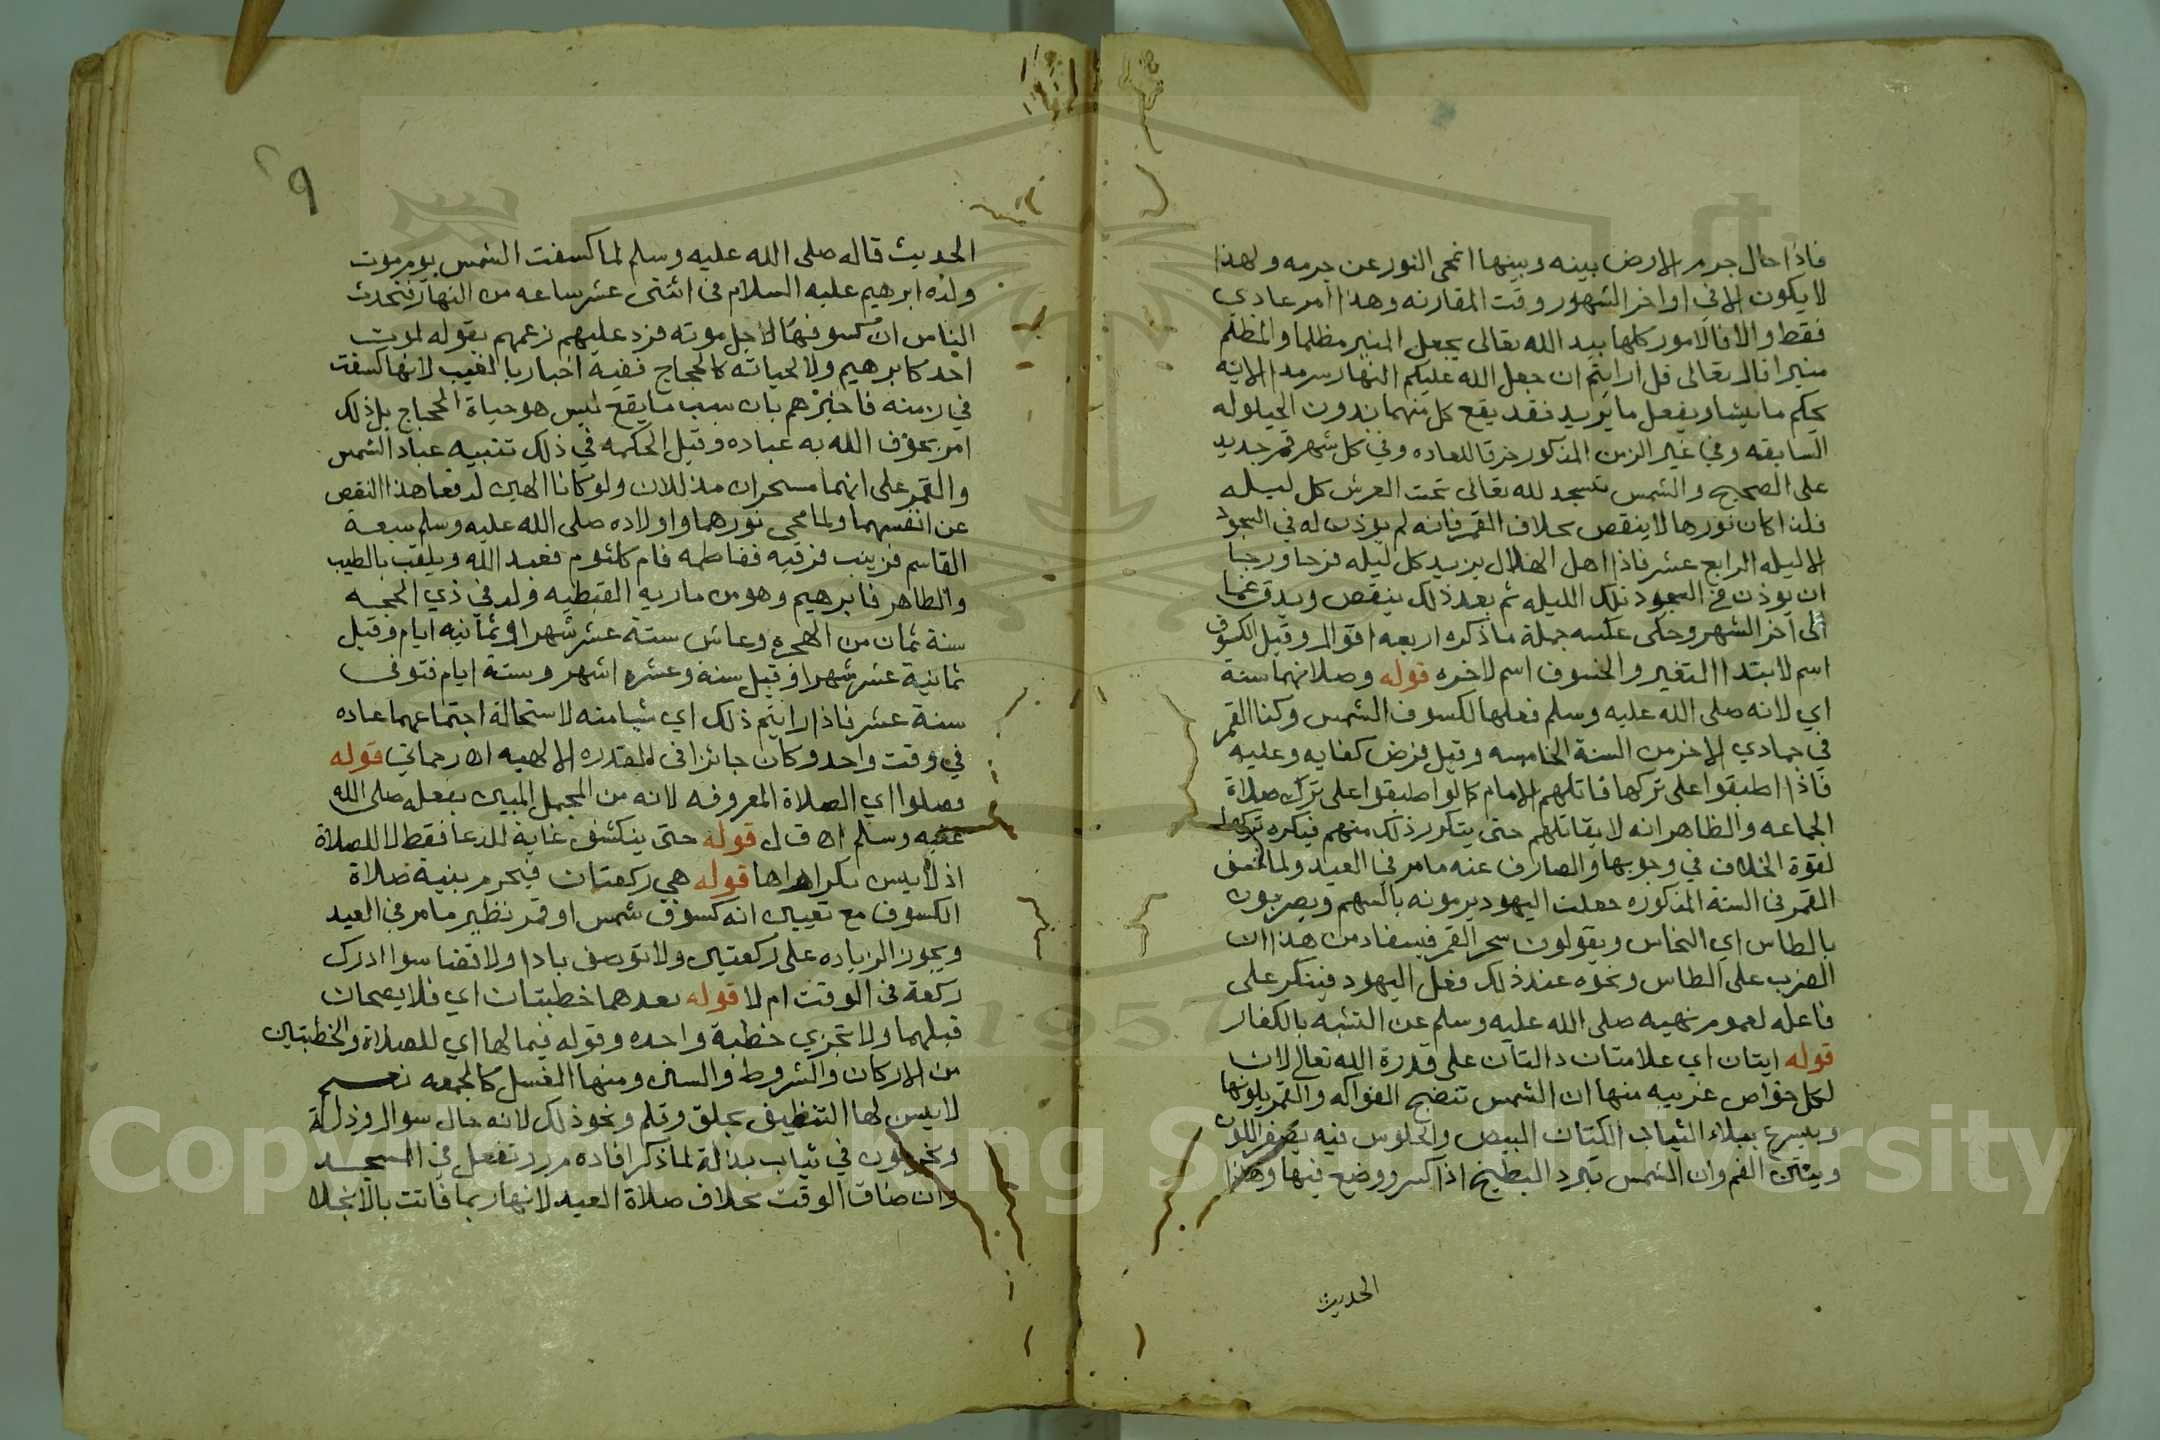 فاذا حال جرم الارض بينه وبينها انمحى النور عن جرمه ولهذا
لا يكون الا في اواخر الشهور وقت المقارنه وهذا امر عادي
فقط والا فالامور كلها بيد الله تعالى يجعل المنير مظلما والمظلم
منيرا قال تعالى قل ارايتم ان جعل الله عليكم النهار سرمدا الايه
يحكم ما يشا ويفعل ما يريد فقد يقع كل منهما بدون الحيلوله
السابقه وفي غير الزمن المذكور خرقا للعاده وفي كل شهر قمر جديد
على الصحيح والشمس تسجد لله تعالى تحت العرش كل ليله
فلذا كان نورها لا ينقص بخلاف القمر فانه لم يوذن له في السجود
الا ليله الرابع عشر فاذا اهل الهلال يزيد كل ليله فرحا ورجا
ان يوذن في السجود تلك الليله ثم بعد ذلك ينقص ويدق غما
الى اخر الشهر وحكى عكسه جملة ما ذكره اربعه اقوال وقيل الكسوف
اسم لابتدا التغير والخسوف اسم لاخره قوله وصلاتهما سنة
اي لانه صلى الله عليه وسلم فعلها لكسوف الشمس وكذا القمر
في جمادي الاخر من السنة الخامسه وقيل فرض كفايه وعليه
فاذا اطبقوا على تركها قاتلهم الامام كما لو اطبقوا على ترك صلاة
الجماعه والظاهر انه لا يقاتلهم حتى يتكرر ذلك منهم فيكره تركها
لقوة الخلاف في وجوبها والصارف عنه ما مر في العيد ولما خسف
القمر في السنة المذكوره جعلت اليهود يرمونه بالسهم ويضربون
بالطاس اي النحاس ويقولون سحر القمر فيستفاد من هذا ان
الضرب على الطاس ونحوه عند ذلك فعل اليهود فينكر على
فاعله لعموم نهيه صلى الله عليه وسلم عن التشبه بالكفار
قوله ايتان اي علامتان دالتان على قدرة الله تعالى لان
لكل خواص غريبه منها ان الشمس تنضج الفواكه والقمر يلونها
ويسرع ببلاء الثياب الكتان البيض والجلوس فيه يصفر اللون
وينتن الفم وان الشمس تبرد البطيخ اذا كسر ووضع فيها وهذا
الحديث
٩
الحديث قاله صلى الله عليه وسلم لما كسفت الشمس يوم موت
ولده ابرهيم عليه السلام في اثنى عشر ساعه من النهار فتحدث
الناس ان كسوفها لاجل موته فرد عليهم زعمهم بقوله لموت
احد كابرهيم ولا لحياته كالحجاج ففيه اخبار بالغيب لانها كسفت
في زمنه فاخبرهم بان سبب ما يقع ليس هو حياة الحجاج بل ذلك
امر يخوف الله به عباده وقيل الحكمه في ذلك تنبيه عباد الشمس
والقمر على انهما مسخران مذللان ولو كانا الهين لدفعا هذا النقص
عن انفسهما ولما محى نورهما واولاده صلى الله عليه وسلم سبعة
القاسم فزينب فرقيه ففاطمه فام كلثوم فعبد الله ويلقب بالطيب
والطاهر فابرهيم وهو من ماريه القبطيه ولد في ذي الحجه
سنة ثمان من الهجره وعاش ستة عشر شهرا وثمانيه ايام وقيل
ثمانية عشر شهرا وقيل سنه وعشره اشهر وستة ايام فتوفى
سنة عشر فاذا رايتم ذلك اي شيا منه لاستحالة اجتماعهما عاده
في وقت واحد وكان جائزا في القدره الالهيه اه رحماني قوله
وصلوا اي الصلاة المعروفه لانه من المجمل المبين بفعله صلى الله
عليه وسلم اه ق ل قوله حتى ينكشف غاية للدعا فقط لا للصلاة
اذ لا يسن تكرارها قوله هي ركعتان فيحرم بنية صلاة
الكسوف مع تعيين انه كسوف شمس او قمر نظير ما مر في العيد
ويجوز الزياده على ركعتين ولا توصف بادا ولا قضا سوا ادرك
ركعة في الوقت ام لا قوله بعدهما خطبتان اي فلا يصحان
قبلهما ولا تجزي خطبة واحده وقوله فيما لها اي للصلاة والخطبتين
من الاركان والشروط والسنن ومنها الغسل كالجمعه نعم
لا يسن لها التنظيف بحلق وقلم ونحو ذلك لانه حال سوال وذلة
ويخرجون في ثياب بدلة لما ذكر افاده م ر وتفعل في المسجد
وان ضاق الوقت بخلاف صلاة العيد لانها ربما فاتت بالانجلا
1957
Copyright © King Saud University